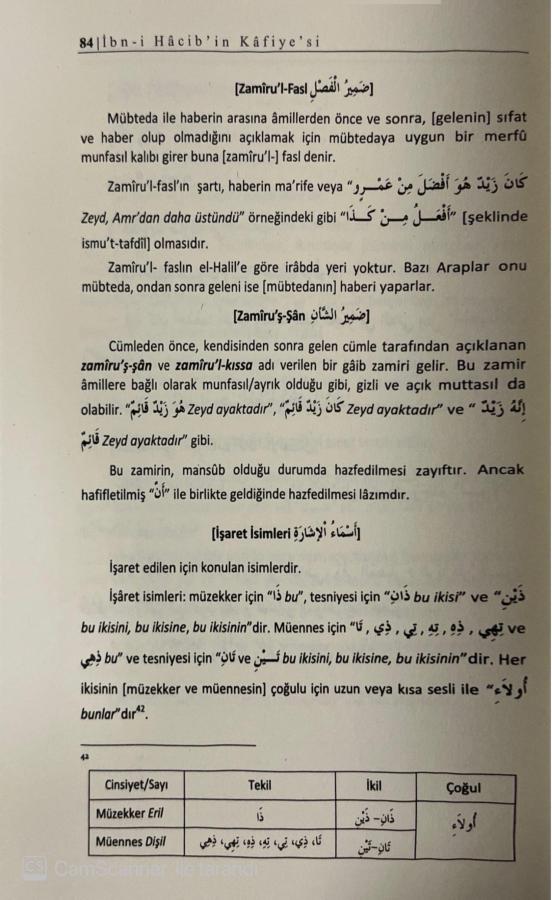 84|İbn-i Hâcib'in Kâfiye'si
[Zamîru'l-Fasl ضَمِيرُ الْفَصْلِ]
Mübteda ile haberin arasına âmillerden önce ve sonra, [gelenin] sıfat
ve haber olup olmadığını açıklamak için mübtedaya uygun bir merfû
munfasıl kalıbı girer buna [zamîru'l-] fasl denir.
Zamîru'l-fasl'ın şartı, haberin ma'rife veya “كَانَ زَيْدٌ هُوَ أَفْضَلَ مِنْ عَمْرٍو
Zeyd, Amr'dan daha üstündü” örneğindeki gibi “أَفْعَلُ مِنْ كَذَا” [şeklinde
ismu't-tafdîl] olmasıdır.
Zamîru'l- faslın el-Halil'e göre irâbda yeri yoktur. Bazı Araplar onu
mübteda, ondan sonra geleni ise [mübtedanın] haberi yaparlar.
[Zamîru'ş-Şân ضَمِيرُ الشَّانِ]
Cümleden önce, kendisinden sonra gelen cümle tarafından açıklanan
zamîru'ş-şân ve zamîru'l-kıssa adı verilen bir gâib zamiri gelir. Bu zamir
âmillere bağlı olarak munfasıl/ayrık olduğu gibi, gizli ve açık muttasıl da
olabilir. “هُوَ زَيْدٌ قَائِمٌ Zeyd ayaktadır”, “كَانَ زَيْدٌ قَائِمٌ Zeyd ayaktadır” ve “إِنَّهُ زَيْدٌ
قَائِمٌ Zeyd ayaktadır” gibi.
Bu zamirin, mansûb olduğu durumda hazfedilmesi zayıftır. Ancak
hafifletilmiş “أَنْ” ile birlikte geldiğinde hazfedilmesi lâzımdır.
[İşaret İsimleri أَسْمَاءُ الْإِشَارَةِ]
İşaret edilen için konulan isimlerdir.
İşâret isimleri: müzekker için “ذَا bu”, tesniyesi için “ذَانِ bu ikisi” ve “ذَيْنِ
bu ikisini, bu ikisine, bu ikisinin”dir. Müennes için “تَا , ذِي , تِي , تِهِ , ذِهِ , تِهِي ve
ذِهِي bu” ve tesniyesi için “تَانِ ve تَيْنِ bu ikisini, bu ikisine, bu ikisinin”dir. Her
ikisinin [müzekker ve müennesin] çoğulu için uzun veya kısa sesli ile “أُولَاءِ
bunlar”dır⁴².
42
Cinsiyet/Sayı Tekil İkil Çoğul
Müzekker Eril ذَا ذَانِ- ذَيْنِ أُولَاءِ
Müennes Dişil تَا، ذِي، تِي، تِهِ، ذِهِ، تِهِي، ذِهِي تَانِ-تَيْنِ
CS CamScanner ile tarandı